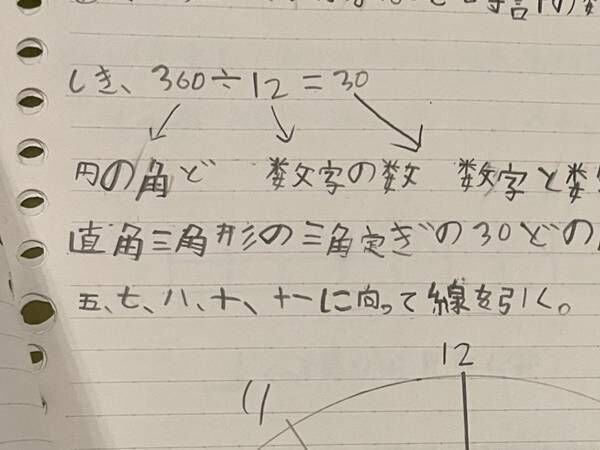 しき、360÷12=30
円の角ど 数字の数 数字と数
直角三角形の三角定ぎの30どの
五、七、八、十、十一に向って線を引く。
12
11